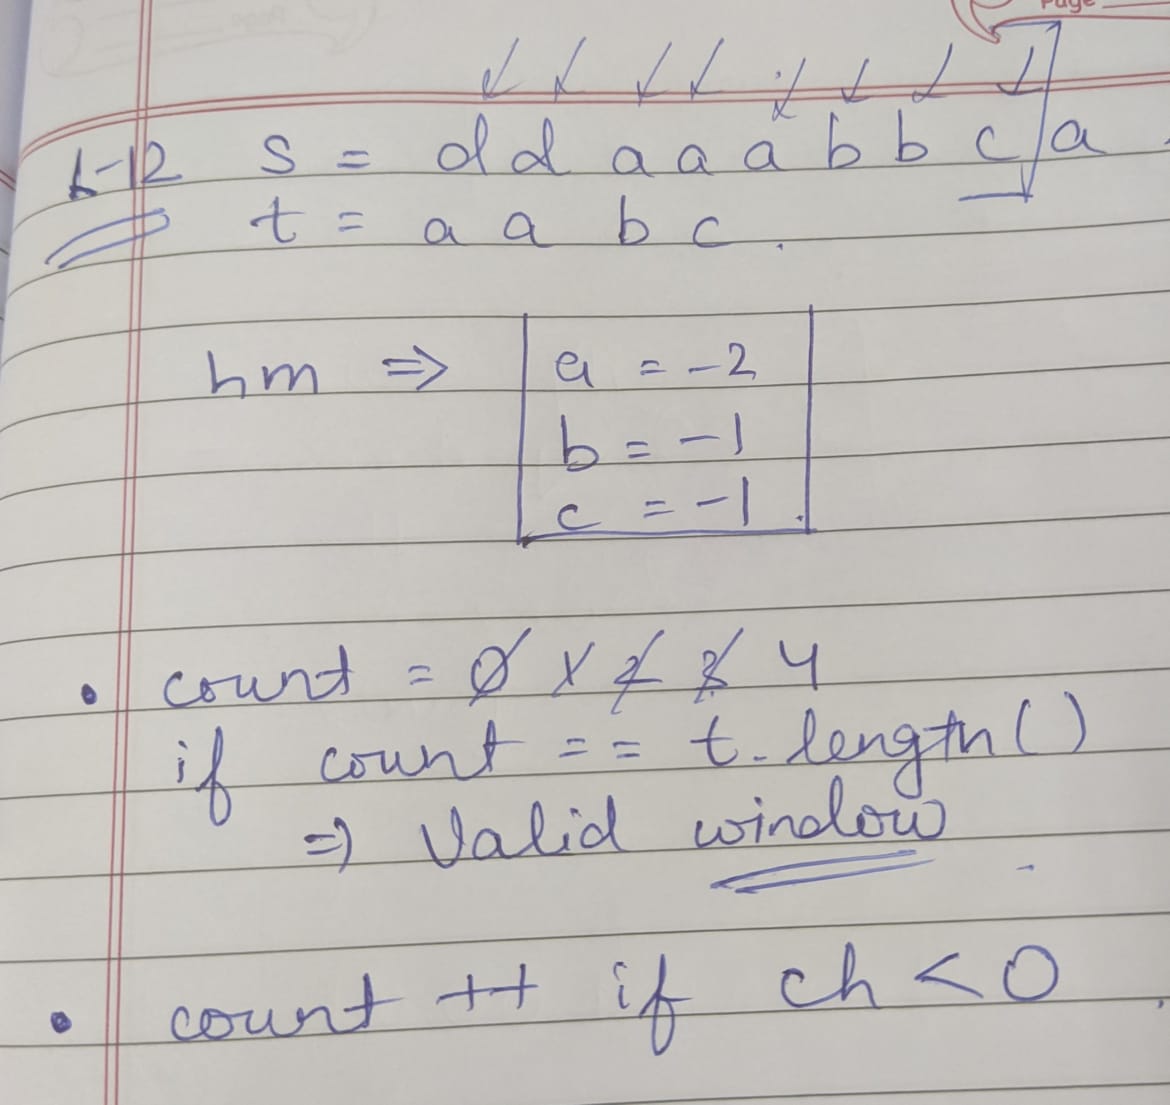 Page
L-12 s = d d a a a b b c a
t = a a b c .
hm ⇒ a = -2
b = -1
c = -1
• count = 0 1 2 3 4
if count == t.length()
⇒ Valid window
• count ++ if ch < 0